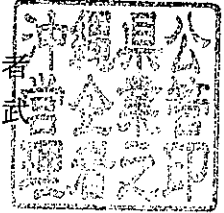 沖縄県公
営企業管
理者之印
者武